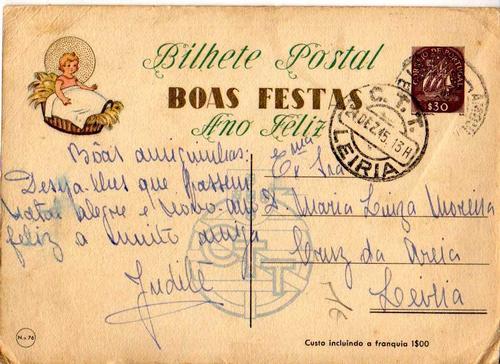 Bilhete Postal
BOAS FESTAS
Ano Feliz
CORREIO DE PORTUGAL
$30
C.T.T.
DEZ.45.13H
LEIRIA
Bôas amiguinhas:
Deseja-lhes que passem
Natal alegre e novo-ano
feliz a muito amiga
Judite
Exma Sra
D. Maria Luiza Moreira
Cruz da Areia
Leiria
CTT
N.º 76
Custo incluindo a franquia 1$00